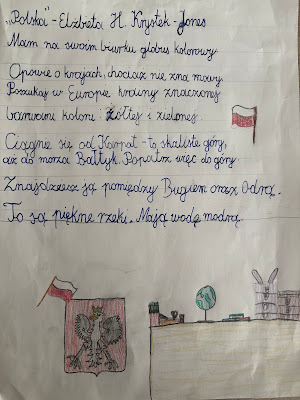 „Polska" - Elżbieta H. Krystek-Jones
Mam na swoim biurku globus kolorowy.
Opowie o krajach, chociaż nie zna mowy.
Poszukaj w Europie krainy znaczonej
barwami koloni: żółtej i zielonej.
Ciągnie się od Karpat - to skaliste góry,
aż do morza Bałtyk. Popatrz więc do góry.
Znajdziesz ją pomiędzy Bugiem oraz Odrą.
To są piękne rzeki. Mają wodę modrą.